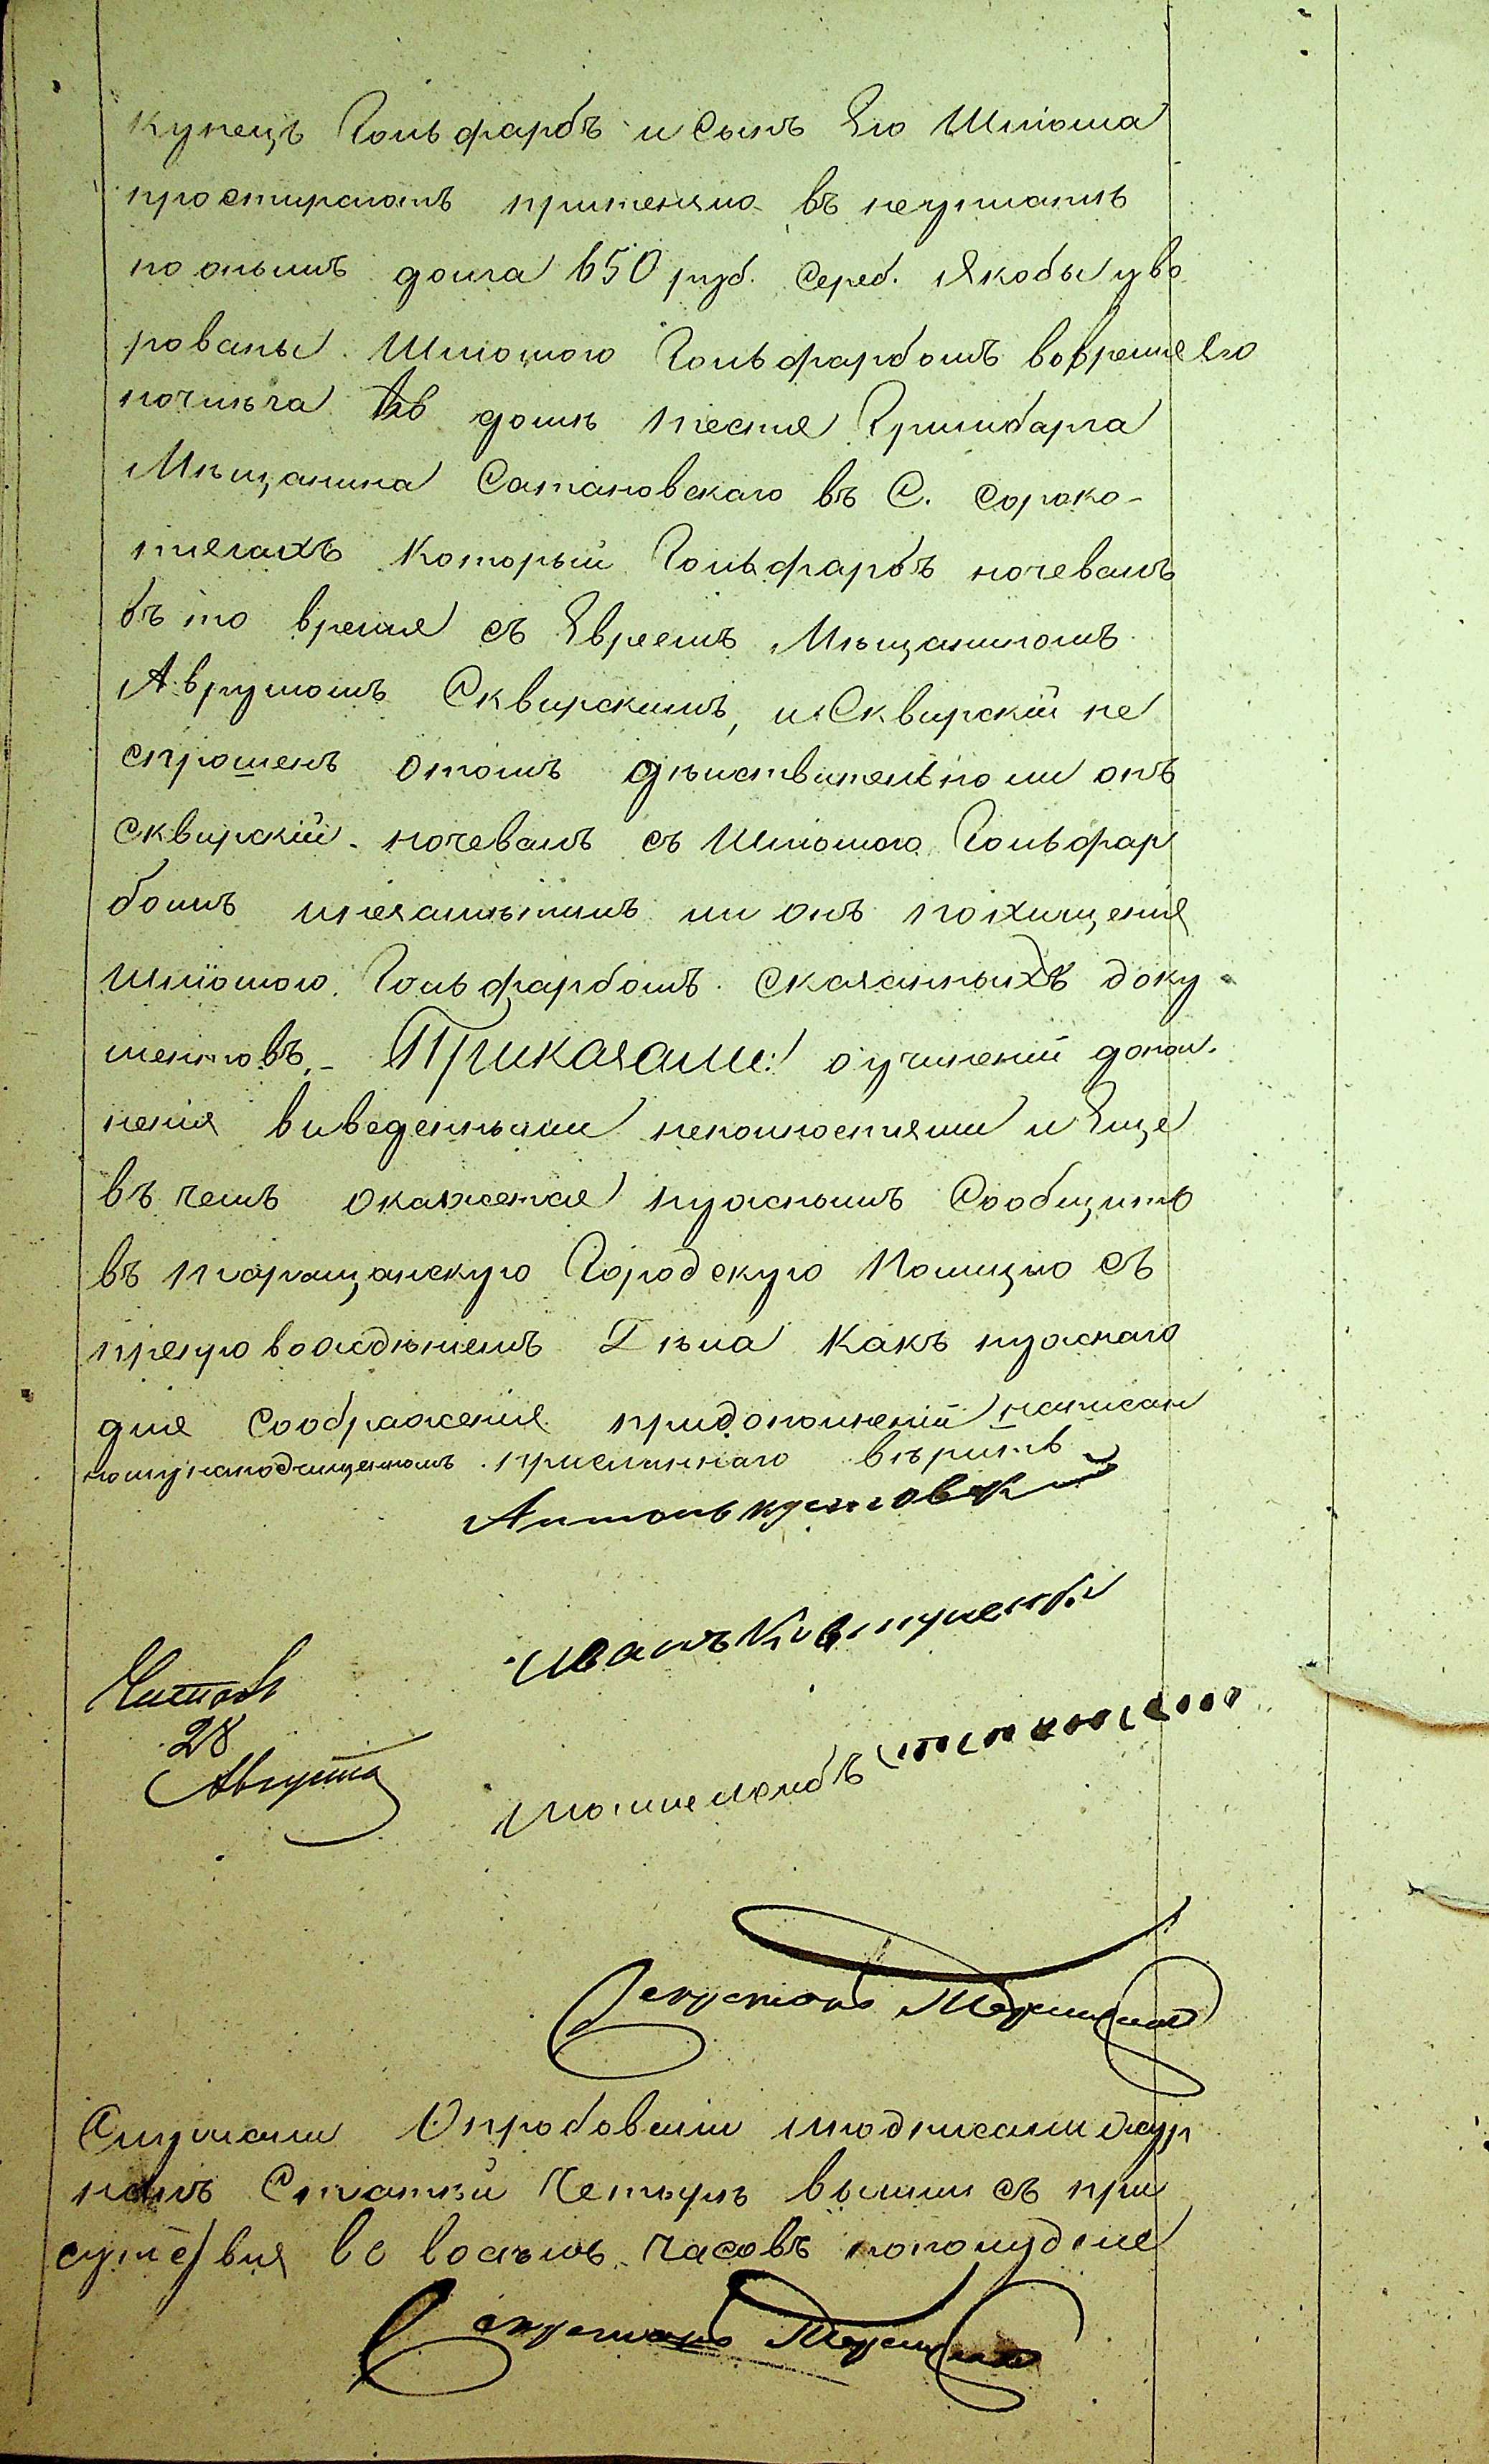 купецъ Гольдфарбъ и сынъ Его Шліома
простираютъ притензію въ неуплатѣ
по онымъ долга 650 руб. сереб. Якобы уво
рованы Шліомою Гольдфарбомъ вовремя его
ночлѣга въ домѣ Гринбарга
Мѣщанина Сатановскаго въ С. Сороко-
тягахъ который Гольдфарбъ ночевалъ
въ то время съ Евреемъ Мѣщаниномъ
Аврумомъ Сквирскимъ, и Сквирскій не
спрошенъ отомъ дѣйствительно ли онъ
Сквирскій ночевалъ съ Шліомою Гольдфар
бомъ изамѣтилъ ли онъ похищенія
Шліомою Гольдфарбомъ сказанныхъ доку
ментовъ. – Приказали: о учиненіи допол-
ненія выведенными неполностями и Еще
въ чемъ окажется нужнымъ Сообщить
въ Таращанскую Городскую Полицію съ
препровожденіемъ Дѣла Какъ нужнаго
для соображенія придополненіи написан
вѣрить
Антонъ
Иванъ
Читалъ
28
Августа
Секретарь
Слушали Опробовали иподписали жур
налъ Статей Четыре вышли съ при
сутствія во восемь часовъ пополудне
Секретарь